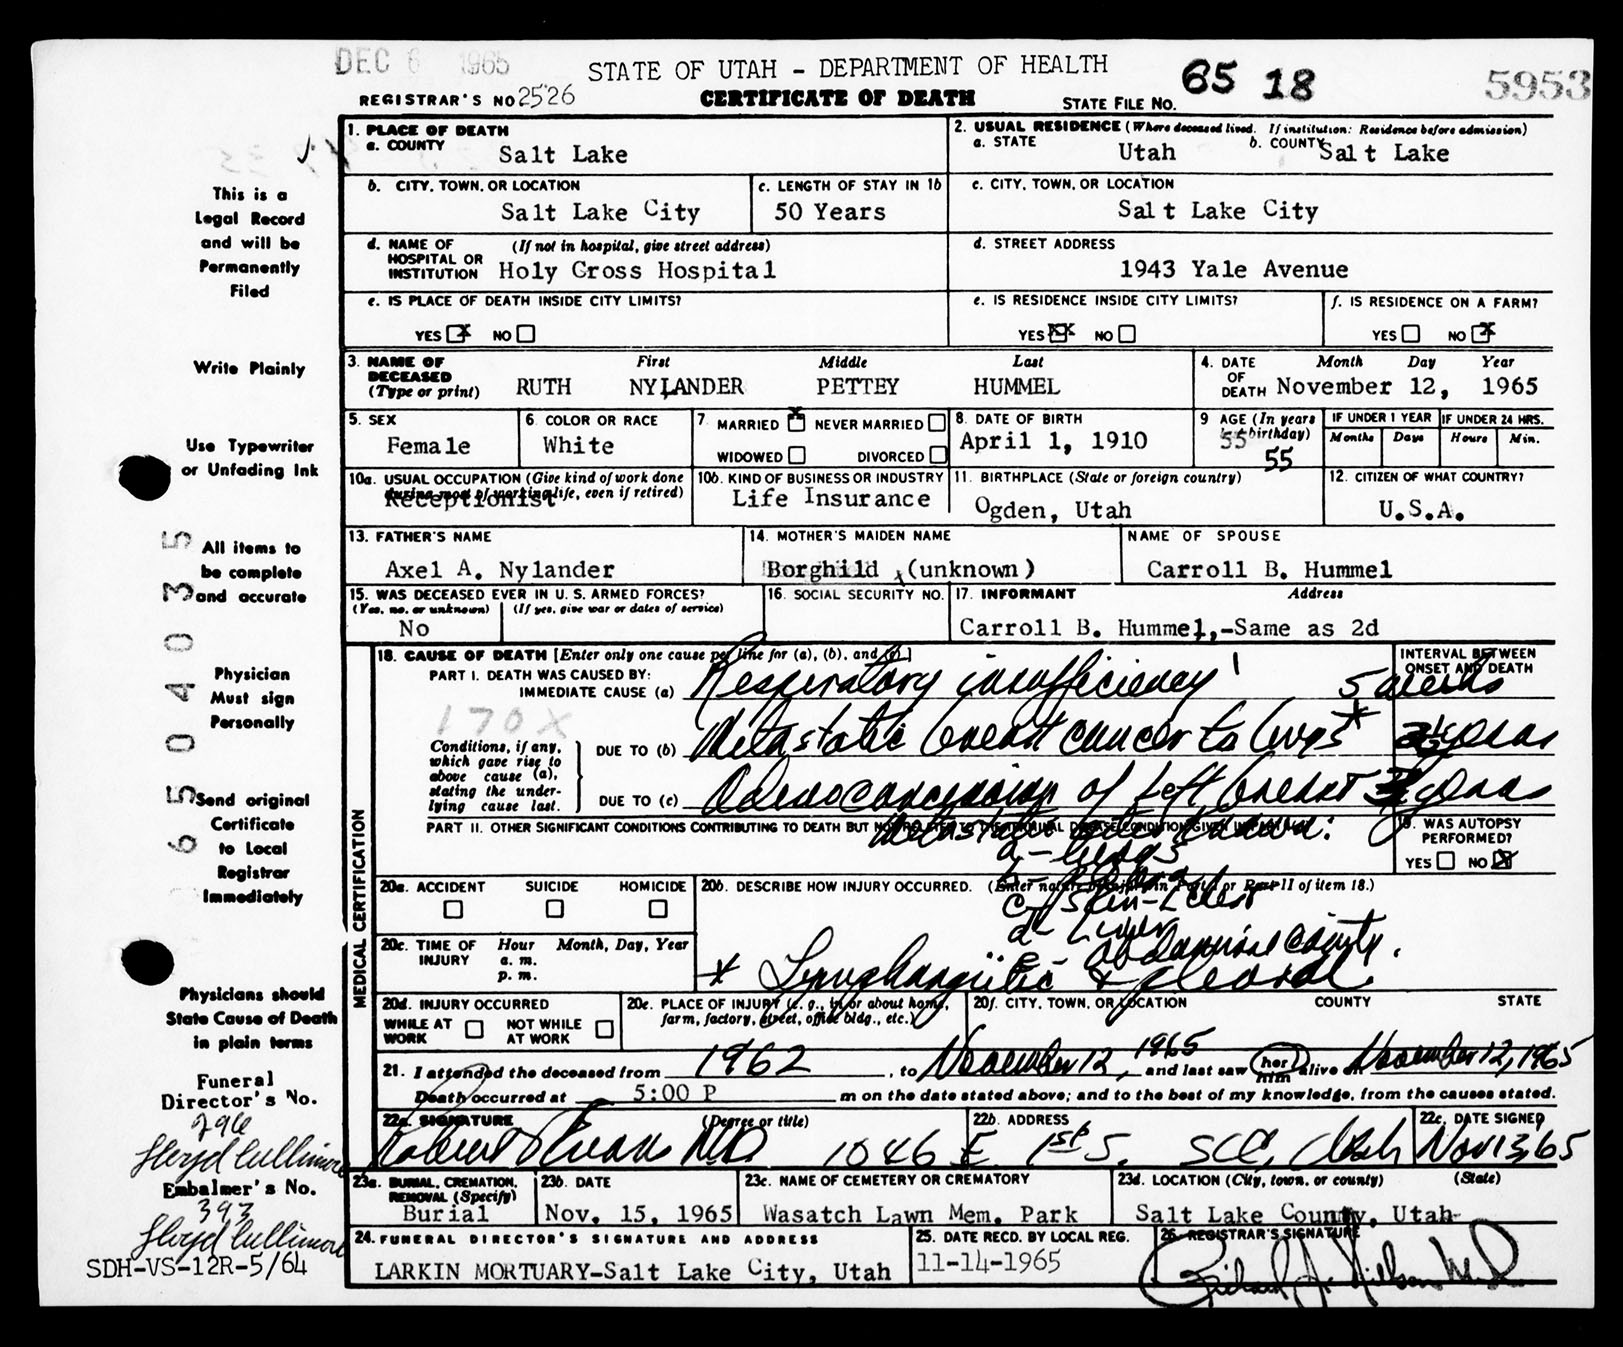 DEC 6 1965
STATE OF UTAH - DEPARTMENT OF HEALTH
65 18
5953
REGISTRAR'S NO 2526
CERTIFICATE OF DEATH
STATE FILE NO.
This is a
Legal Record
and will be
Permanently
Filed
Write Plainly
Use Typewriter
or Unfading Ink
All items to
be complete
and accurate
Physician
Must sign
Personally
Send original
Certificate
to Local
Registrar
Immediately
Physicians should
State Cause of Death
in plain terms
65 04035
Funeral
Director's No.
296
Lloyd Cullimore
Embalmer's No.
393
Lloyd Cullimore
SDH-VS-12R-5/64
1. PLACE OF DEATH
a. COUNTY Salt Lake
2. USUAL RESIDENCE (Where deceased lived. If institution: Residence before admission)
a. STATE Utah b. COUNTY Salt Lake
b. CITY, TOWN, OR LOCATION
Salt Lake City
c. LENGTH OF STAY IN 1b
50 Years
c. CITY, TOWN, OR LOCATION
Salt Lake City
d. NAME OF HOSPITAL OR INSTITUTION (If not in hospital, give street address)
Holy Cross Hospital
d. STREET ADDRESS
1943 Yale Avenue
e. IS PLACE OF DEATH INSIDE CITY LIMITS?
YES X NO
e. IS RESIDENCE INSIDE CITY LIMITS?
YES XX NO
f. IS RESIDENCE ON A FARM?
YES NO X
3. NAME OF DECEASED (Type or print) First Middle Last
RUTH NYLANDER PETTEY HUMMEL
4. DATE OF DEATH Month Day Year
November 12, 1965
5. SEX
Female
6. COLOR OR RACE
White
7 MARRIED X NEVER MARRIED
WIDOWED DIVORCED
8. DATE OF BIRTH
April 1, 1910
9 AGE (In years last birthday)
55
55
IF UNDER 1 YEAR IF UNDER 24 HRS.
Months Days Hours Min.
10a. USUAL OCCUPATION (Give kind of work done during most of working life, even if retired)
Receptionist
10b. KIND OF BUSINESS OR INDUSTRY
Life Insurance
11. BIRTHPLACE (State or foreign country)
Ogden, Utah
12. CITIZEN OF WHAT COUNTRY?
U.S.A.
13. FATHER'S NAME
Axel A. Nylander
14. MOTHER'S MAIDEN NAME
Borghild (unknown)
NAME OF SPOUSE
Carroll B. Hummel
15. WAS DECEASED EVER IN U. S. ARMED FORCES?
(Yes, no, or unknown) (If yes, give war or dates of service)
No
16. SOCIAL SECURITY NO.
17. INFORMANT Address
Carroll B. Hummel,-Same as 2d
MEDICAL CERTIFICATION
18. CAUSE OF DEATH [Enter only one cause per line for (a), (b), and (c)]
INTERVAL BETWEEN ONSET AND DEATH
PART I. DEATH WAS CAUSED BY:
IMMEDIATE CAUSE (a) Respiratory insufficiency 5 weeks
170X
Conditions, if any, which gave rise to above cause (a), stating the underlying cause last.
DUE TO (b) Metastatic breast cancer to lungs* years
DUE TO (c) Adenocarcinoma of left breast years
PART II. OTHER SIGNIFICANT CONDITIONS CONTRIBUTING TO DEATH BUT NOT RELATED TO THE TERMINAL DISEASE CONDITION GIVEN IN PART I(a)
a - lungs
c - Skin - chest
d - Liver
e - abdominal cavity.
* Lymphangitic & pleural
19. WAS AUTOPSY PERFORMED?
YES NO X
20a. ACCIDENT SUICIDE HOMICIDE
20b. DESCRIBE HOW INJURY OCCURRED. (Enter nature of injury in Part I or Part II of item 18.)
20c. TIME OF INJURY Hour Month, Day, Year
a. m.
p. m.
20d. INJURY OCCURRED
WHILE AT WORK NOT WHILE AT WORK
20e. PLACE OF INJURY (e. g., in or about home, farm, factory, street, office bldg., etc.)
20f. CITY, TOWN, OR LOCATION COUNTY STATE
21. I attended the deceased from 1962, to November 12, 1965 and last saw her him alive on November 12, 1965
Death occurred at 5:00 P m on the date stated above; and to the best of my knowledge, from the causes stated.
22a. SIGNATURE (Degree or title)
Robert Evans M.D.
22b. ADDRESS
1046 E 1st S. SLC, Utah
22c. DATE SIGNED
Nov 13, 65
23a. BURIAL, CREMATION, REMOVAL (Specify)
Burial
23b. DATE
Nov. 15, 1965
23c. NAME OF CEMETERY OR CREMATORY
Wasatch Lawn Mem. Park
23d. LOCATION (City, town, or county) (State)
Salt Lake County, Utah
24. FUNERAL DIRECTOR'S SIGNATURE AND ADDRESS
LARKIN MORTUARY-Salt Lake City, Utah
25. DATE RECD. BY LOCAL REG.
11-14-1965
26. REGISTRAR'S SIGNATURE